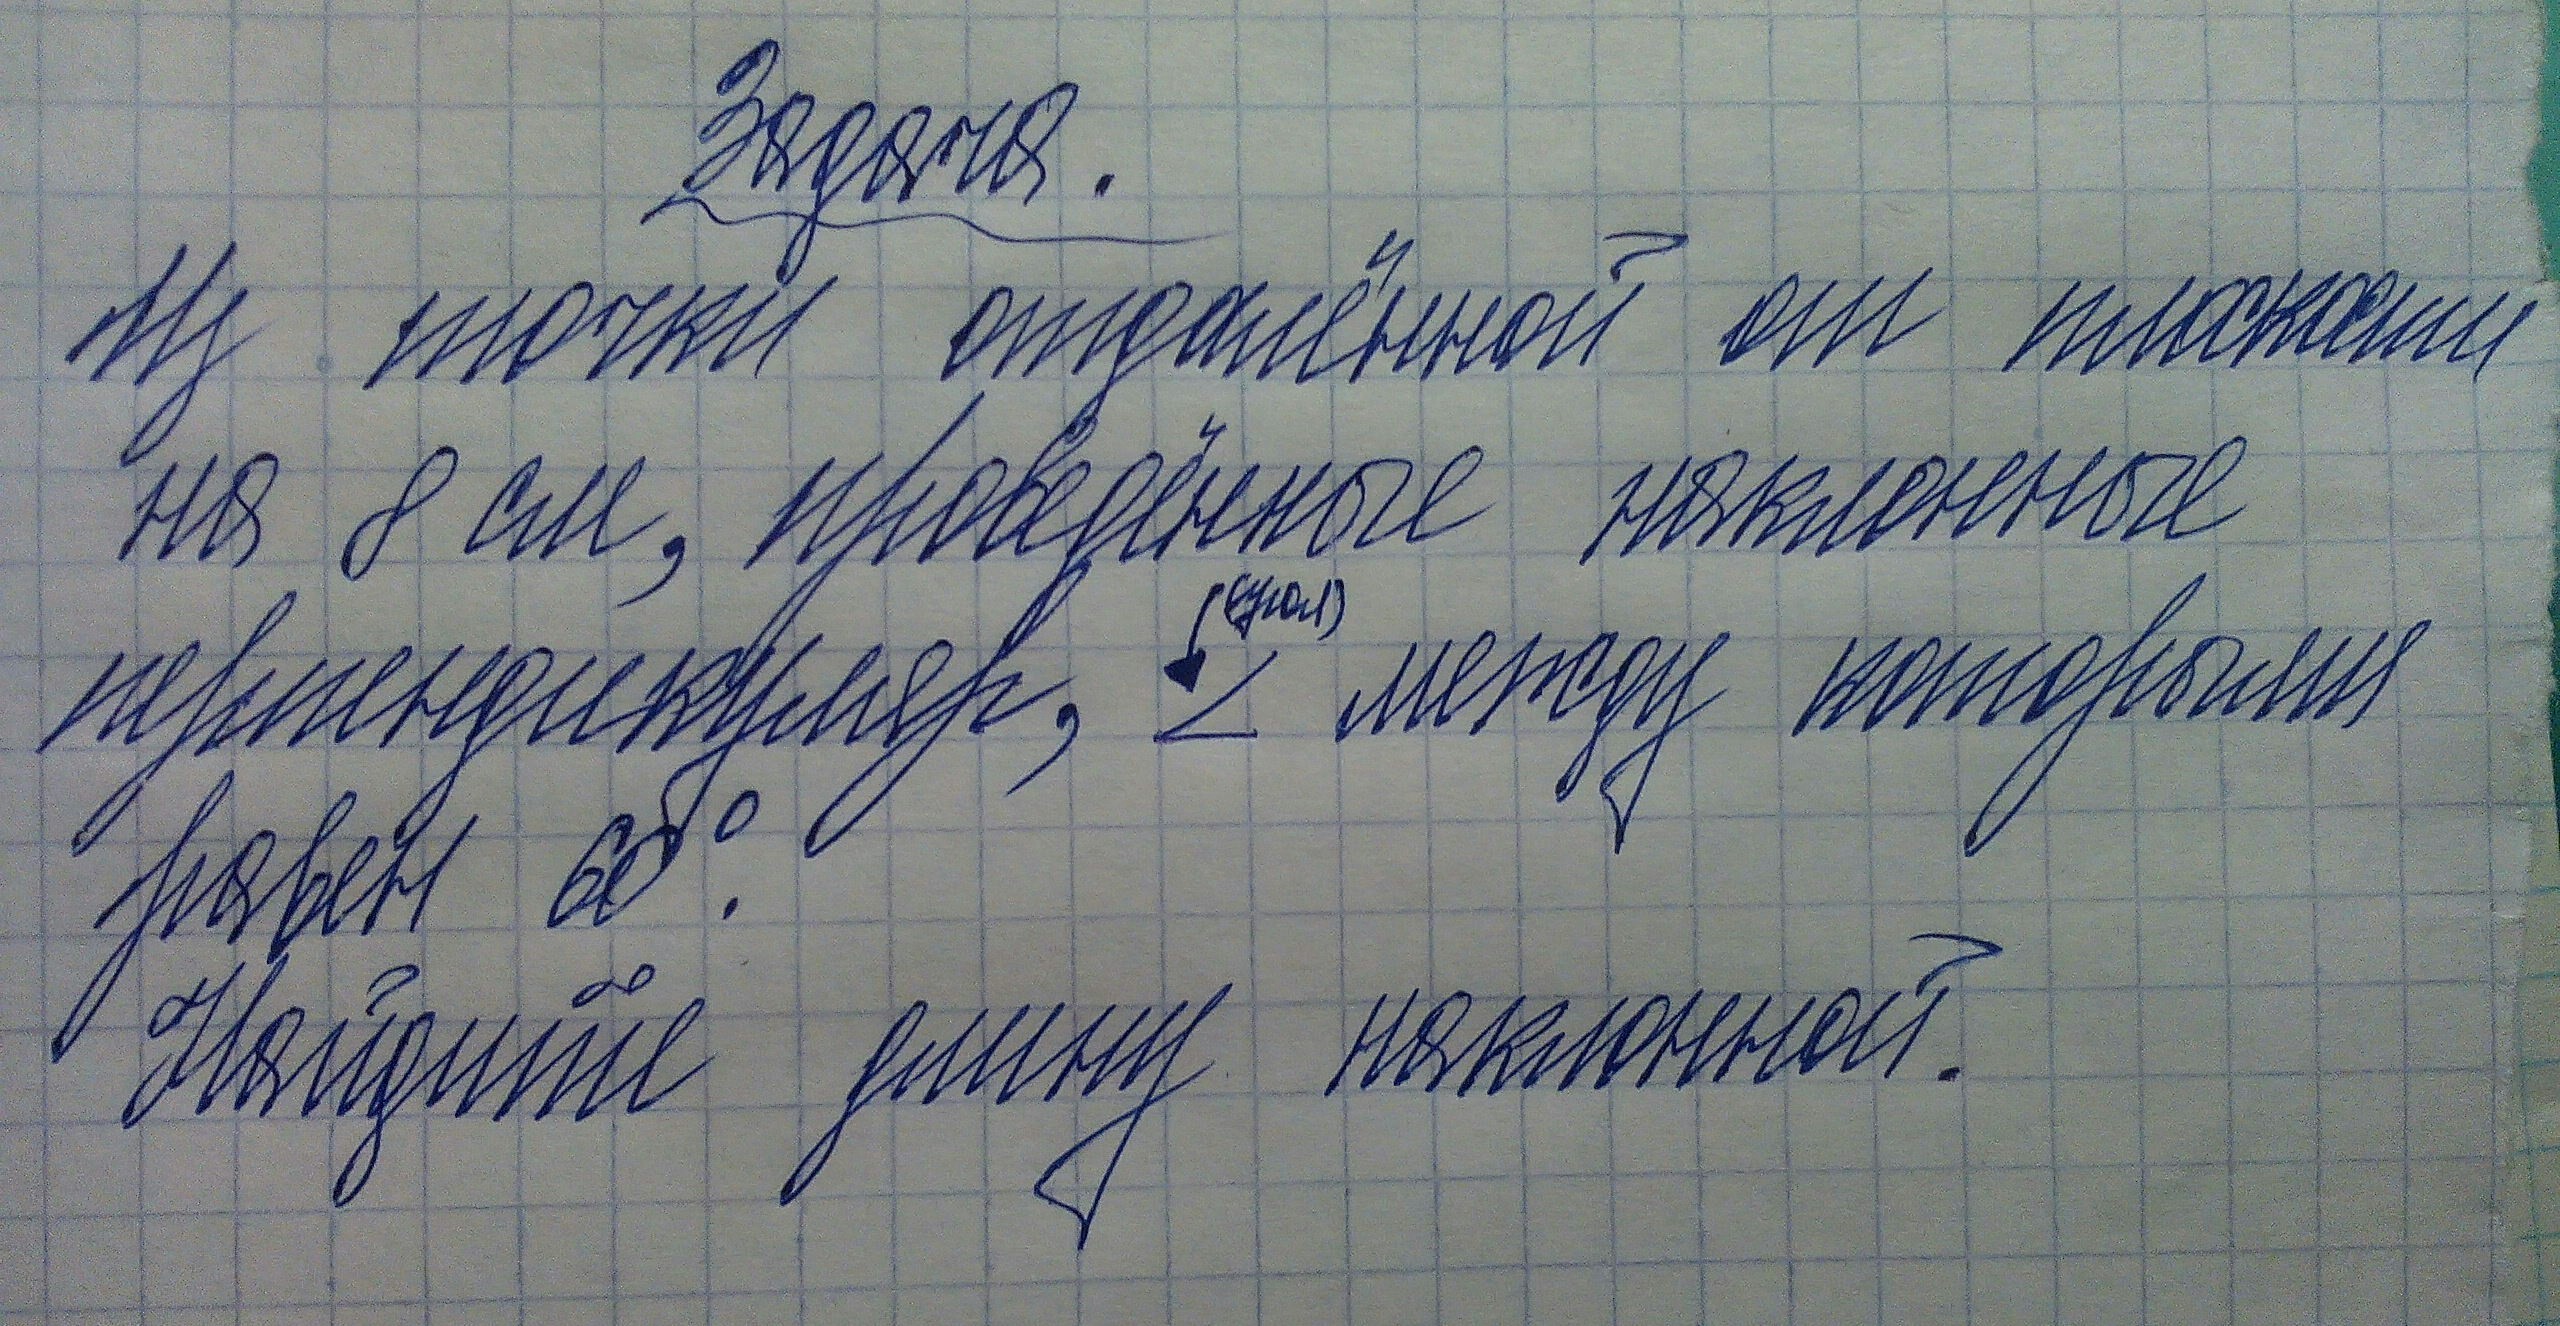 Задача.
Из точки отдалённой от плоскости
на 8 см, проведённые наклонные
перпендикуляр, ∠ (угол) между которыми
равен 60°.
Найдите длину наклонной.